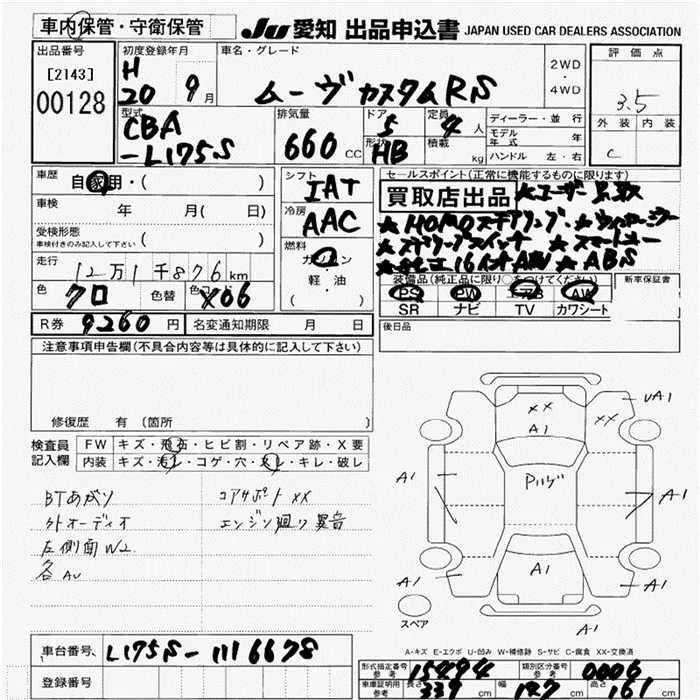 車内保管・守衛保管
JU 愛知 出品申込書 JAPAN USED CAR DEALERS ASSOCIATION
出品番号
[2143]
00128
初度登録年月
H
20 9月
車名・グレード
ムーヴカスタムRS
2WD
・
4WD
評価点
3.5
外装 内装
C
型式
CBA
-L175S
排気量
660 CC
ドア
5
形状
HB
定員
4人
積載
kg
ディーラー・並行
モデル年式 年
ハンドル 左・右
車歴
自家用・( )
車検
年 月( 日)
受検形態
車検付きのみ記入して下さい ( )
走行
12万1千876km
色
クロ
色替
色コード
X06
シフト
IAT
冷房
AAC
燃料
ガソリン
軽油
( )
セールスポイント(正常に機能するものに限ります)
買取店出品 ★ユーザー買取
★MOMOステアリング・ウィンカーミラー
★ステアリングスイッチ ★スマートキー
16インチAW ★ABS
装備品(純正品に限り○をつけてください) 新車保証書
PS PW エアB AW
SR ナビ TV カワシート
R券 9260円 名変通知期限 月 日
後日品
注意事項申告欄(不具合内容等は具体的に記入して下さい)
修復歴 有(箇所 )
検査員
記入欄
FW キズ・飛石・ヒビ割・リペア跡・X要
内装 キズ・汚レ・コゲ・穴・スレ・キレ・破レ
BTあがり コアサポートXX
外オーディオ エンジン廻り異音
左側面W2
各AU
UA1
XX
XX
A1
A1
Pハゲ
A1
A1
A1
A1
A1
スペア
A-キズ E-エクボ U-凹み W-補修跡 S-サビ C-腐食 XX-交換済
車台番号 L175S-1116678
登録番号
形式指定番号 参考 15494 類別区分番号 参考 0006
車庫証明用 参考 長さ 339cm 幅 147cm 高さ 161cm